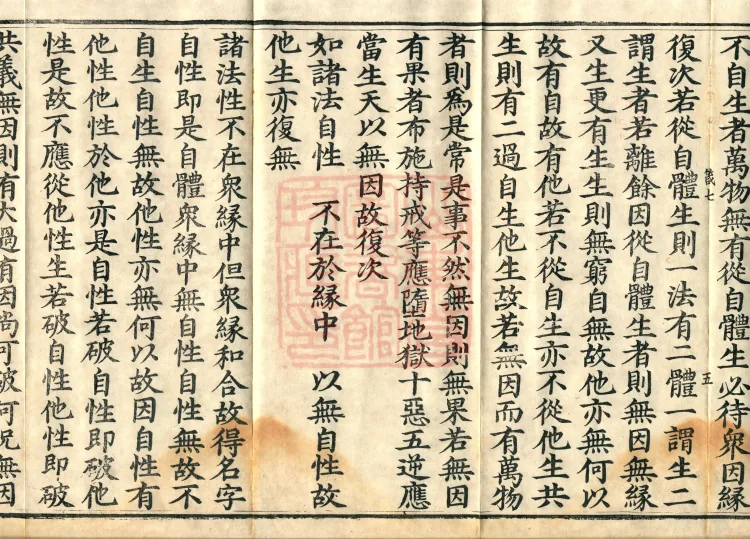 不自生者萬物無有從自體生必待衆因緣
復次若從自體生則一法有二體一謂生二
謂生者若離餘因從自體生者則無因無緣
又生更有生生生則無窮自無故他亦無何以
故有自故有他若不從自生亦不從他生共
生則有二過自生他生故若無因而有萬物
者則爲是常是事不然無因則無果若無因
有果者布施持戒等應墮地獄十惡五逆應
當生天以無因故復次
如諸法自性　不在於緣中　以無自性故
他生亦復無
諸法性不在衆緣中但衆緣和合故得名字
自性即是自體衆緣中無自性自性無故不
自生自性無故他性亦無何以故因自性有
他性他性於他亦是自性若破自性即破他
性是故不應從他性生若破自性他性即破
共義無因則有大過有因尚可破何況無因
五